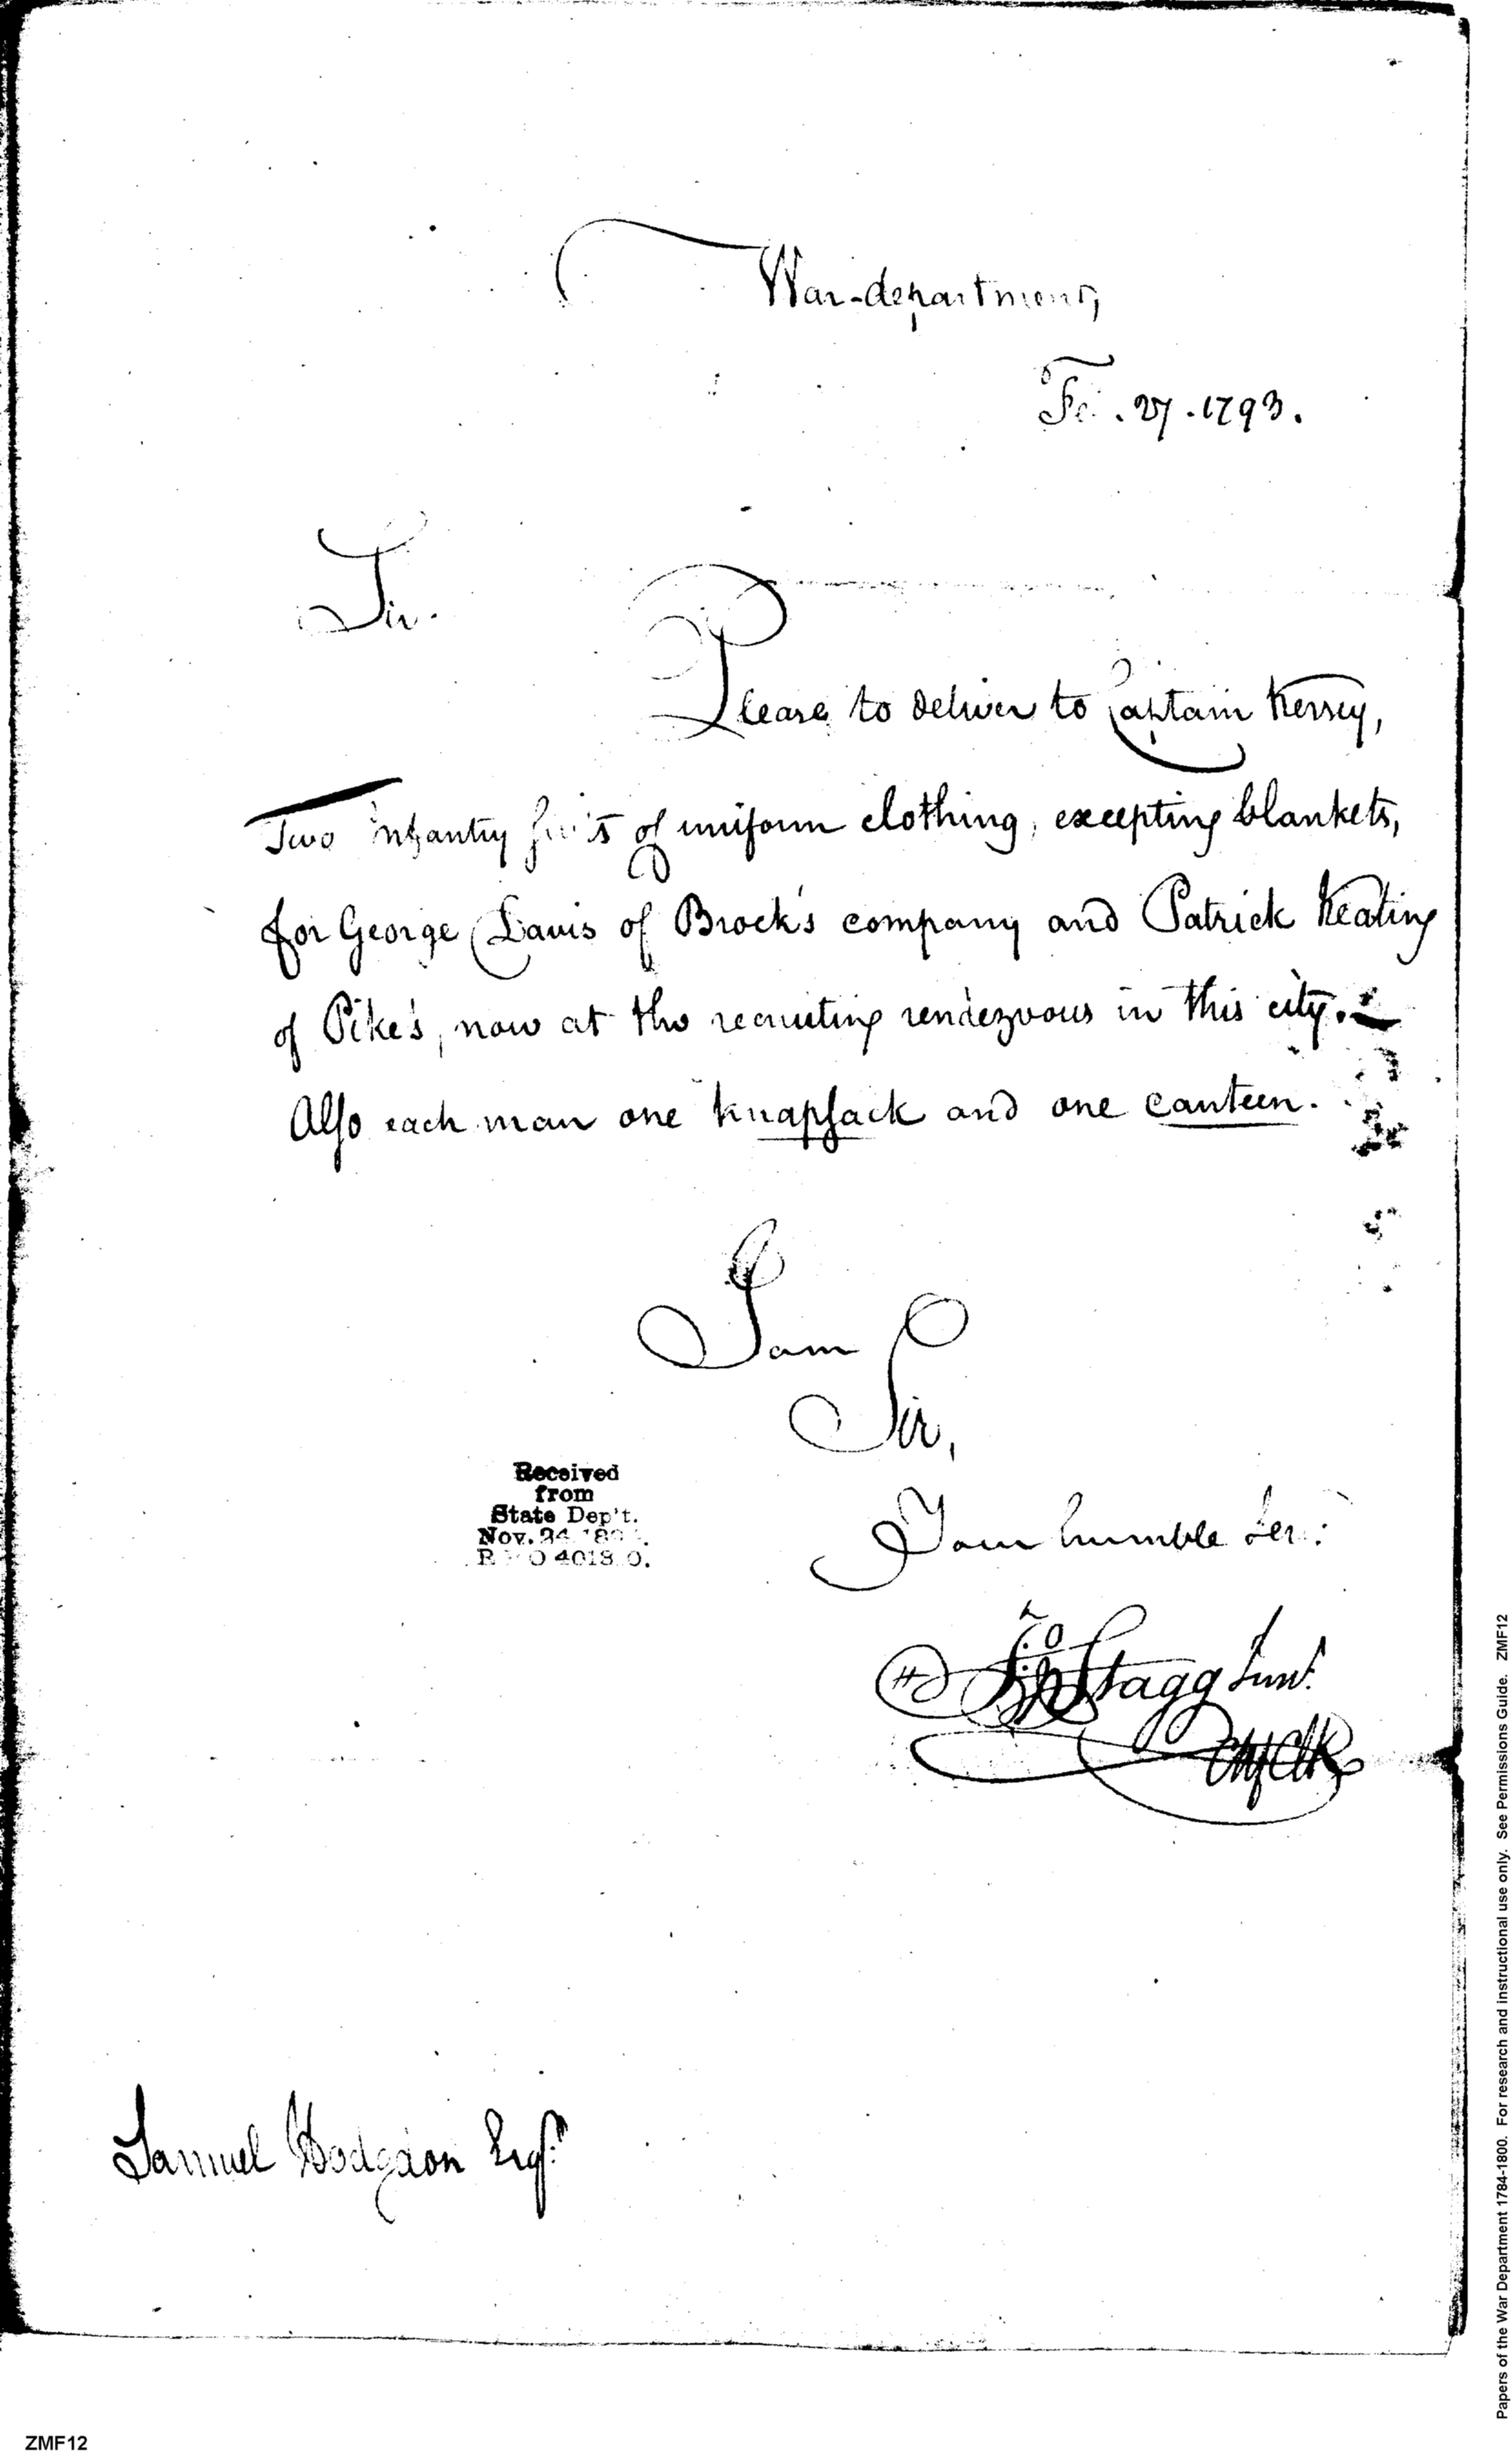 War-department,
Fe . 27 . 1793.
Sir.
Please to deliver to Captain Kersey,
Two infantry suits of uniform clothing, excepting blankets,
for George Davis of Brock's company and Patrick Keating
of Pike's, now at the recruiting rendezvous in this city.
Also each man one knapsack and one canteen.
I am
Sir,
Your humble Ser:
Jno Stagg Junr.
Chf Clk
Received
from
State Dep't.
Nov. 24
Samuel Hodgdon Esqr.
ZMF12
Papers of the War Department 1784-1800. For research and instructional use only. See Permissions Guide. ZMF12